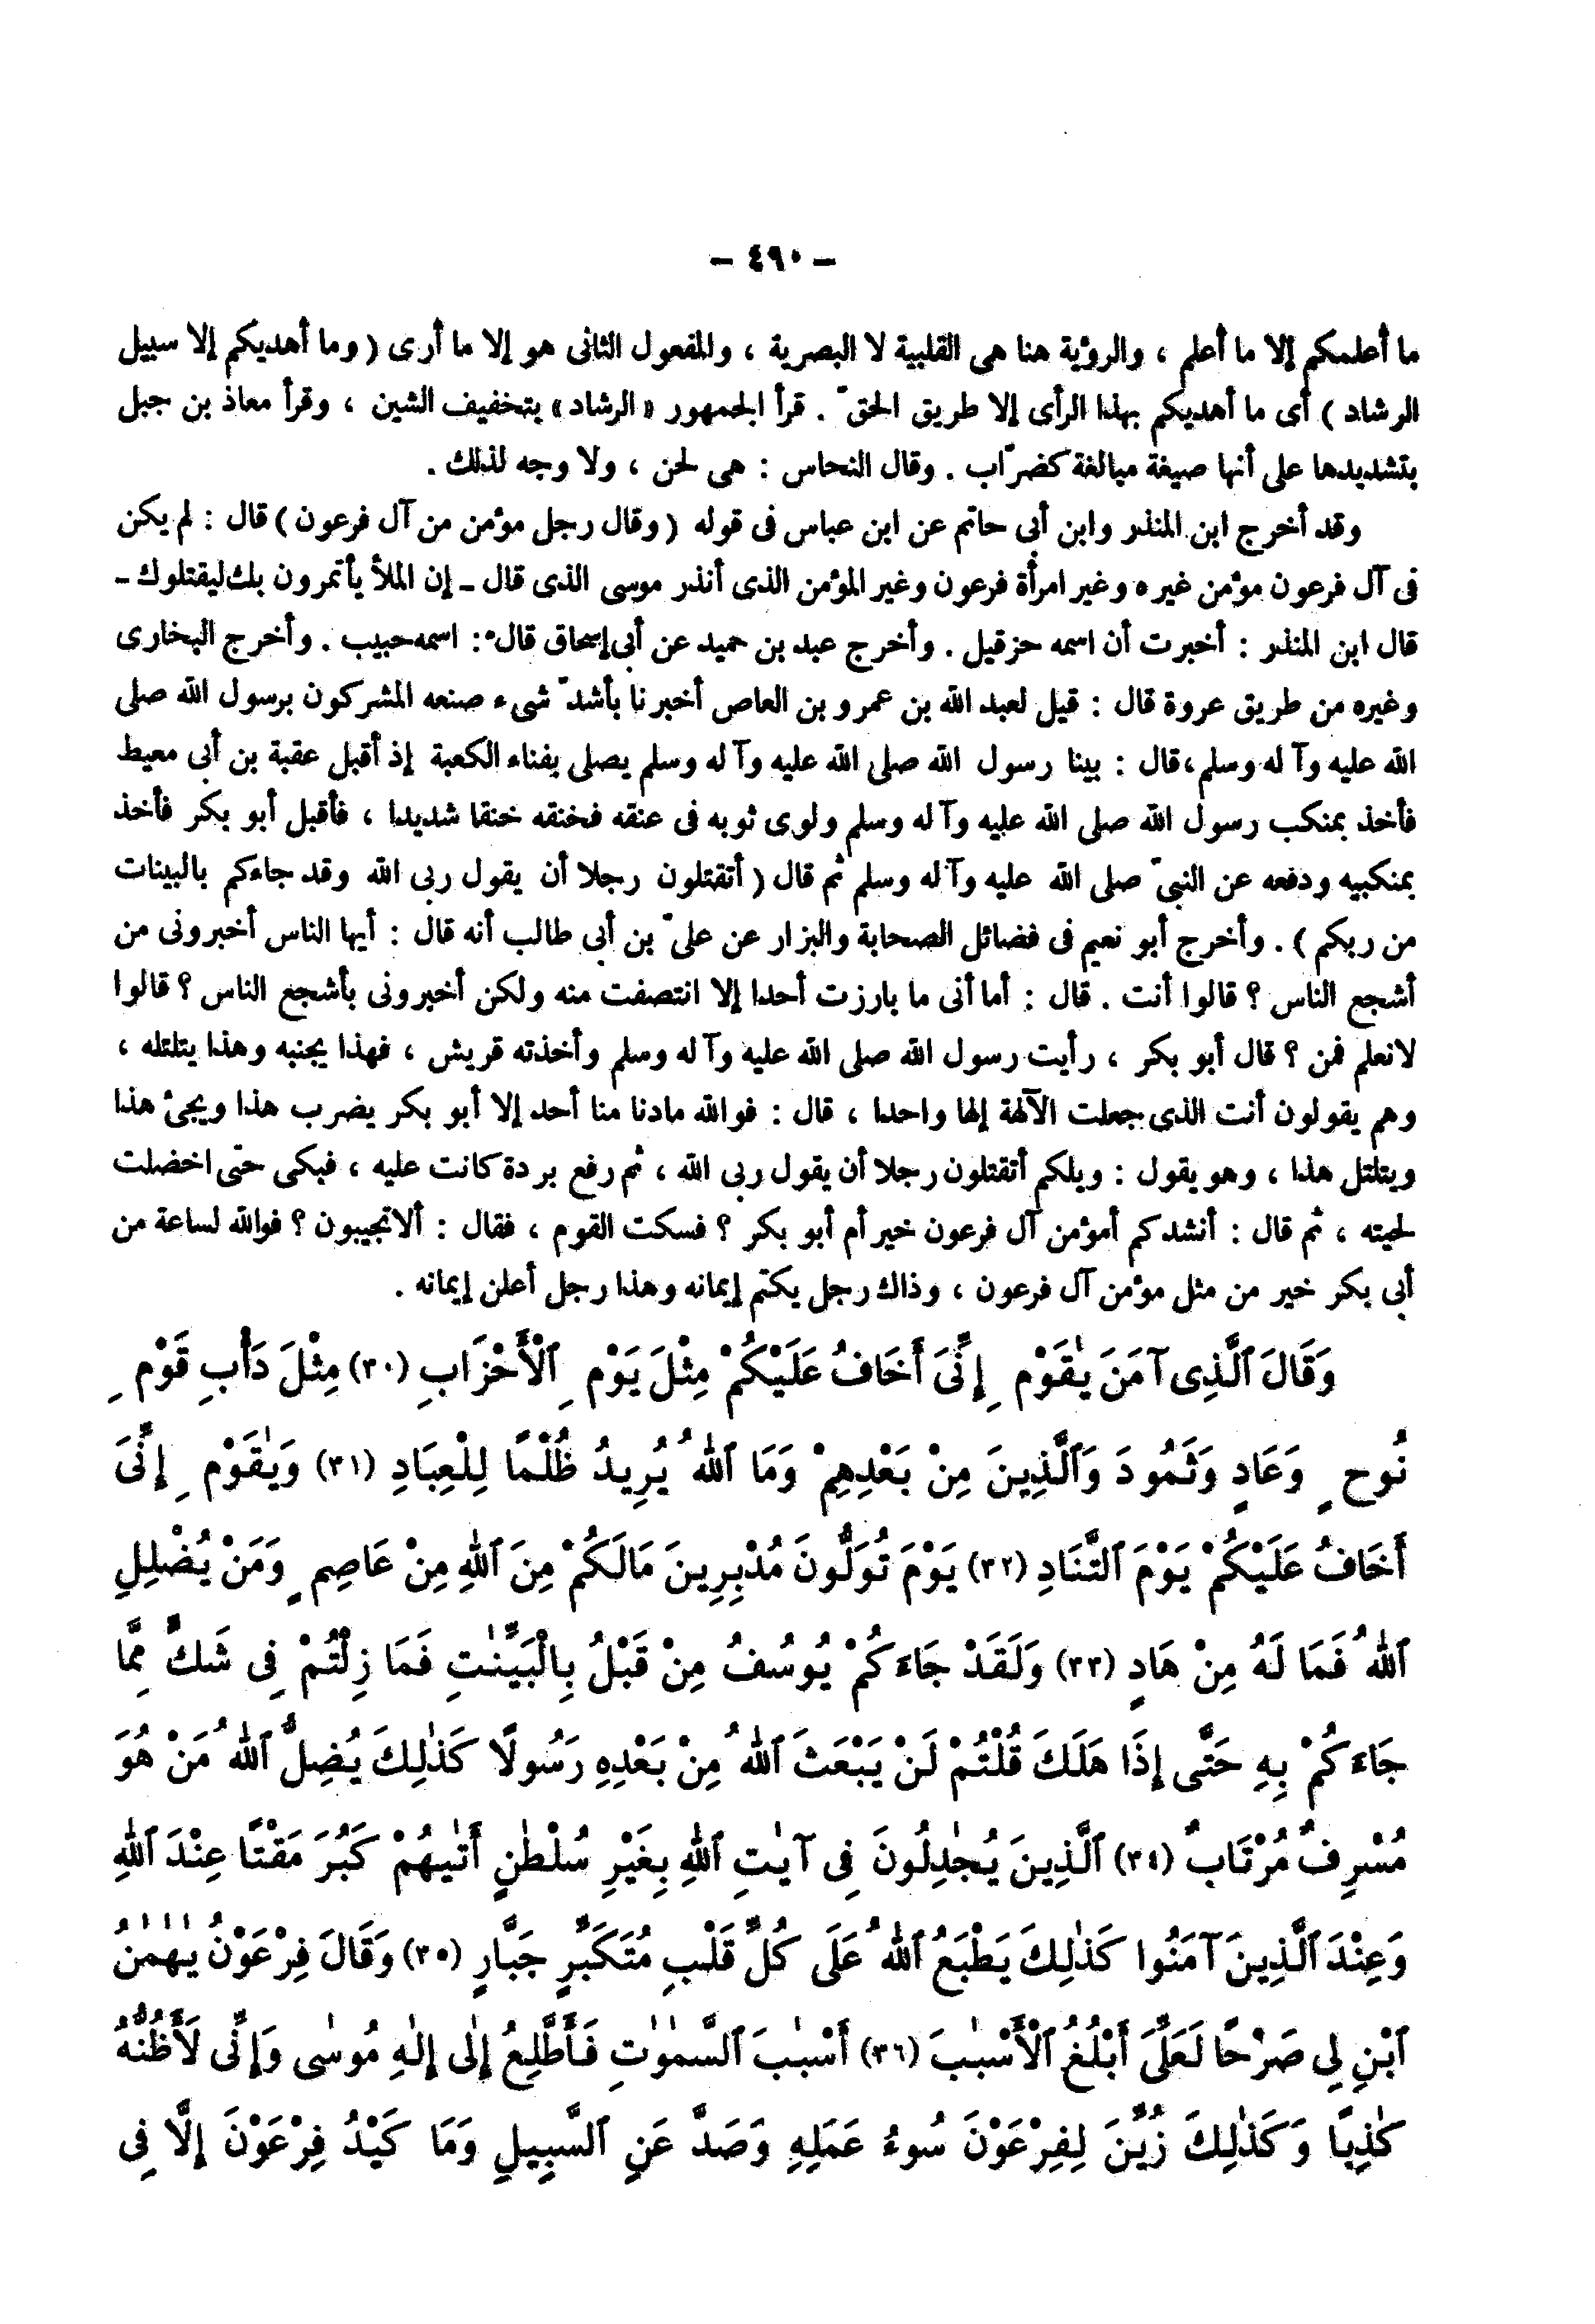 - ٤٩٠ -
ما أعلمكم إلا ما أعلم ، والرؤية هنا هى القلبية لا البصرية ، والمفعول الثانى هو إلا ما أرى ( وما أهديكم إلا سبيل
الرشاد ) أى ما أهديكم بهذا الرأى إلا طريق الحقّ . قرأ الجمهور «الرشاد» بتخفيف الشين ، وقرأ معاذ بن جبل
بتشديدها على أنها صيغة مبالغة كضرّاب . وقال النحاس : هى لحن ، ولا وجه لذلك .
وقد أخرج ابن المنذر وابن أبى حاتم عن ابن عباس فى قوله ( وقال رجل مؤمن من آل فرعون ) قال : لم يكن
فى آل فرعون مؤمن غيره وغير امرأة فرعون وغير المؤمن الذى أنذر موسى الذى قال ـ إن الملأ يأتمرون بك ليقتلوك ـ
قال ابن المنذر : أخبرت أن اسمه حزقيل . وأخرج عبد بن حميد عن أبى إسحاق قال : اسمه حبيب . وأخرج البخارى
وغيره من طريق عروة قال : قيل لعبد الله بن عمرو بن العاص أخبرنا بأشدّ شىء صنعه المشركون برسول الله صلى
الله عليه وآله وسلم ، قال : بينا رسول الله صلى الله عليه وآله وسلم يصلى بفناء الكعبة إذ أقبل عقبة بن أبى معيط
فأخذ بمنكب رسول الله صلى الله عليه وآله وسلم ولوى ثوبه فى عنقه فخنقه خنقا شديدا ، فأقبل أبو بكر فأخذ
بمنكبيه ودفعه عن النبىّ صلى الله عليه وآله وسلم ثم قال ( أتقتلون رجلا أن يقول ربى الله وقد جاءكم بالبينات
من ربكم ) . وأخرج أبو نعيم فى فضائل الصحابة والبزار عن علىّ بن أبى طالب أنه قال : أيها الناس أخبرونى من
أشجع الناس ؟ قالوا أنت . قال : أما أنى ما بارزت أحدا إلا انتصفت منه ولكن أخبرونى بأشجع الناس ؟ قالوا
لا نعلم فمن ؟ قال أبو بكر ، رأيت رسول الله صلى الله عليه وآله وسلم وأخذته قريش ، فهذا يجنبه وهذا يتلتله ،
وهم يقولون أنت الذى جعلت الآلهة إلها واحدا ، قال : فوالله مادنا منا أحد إلا أبو بكر يضرب هذا ويجئ هذا
ويتلتل هذا ، وهو يقول : ويلكم أتقتلون رجلا أن يقول ربى الله ، ثم رفع بردة كانت عليه ، فبكى حتى اخضلت
لحيته ، ثم قال : أنشدكم أمؤمن آل فرعون خير أم أبو بكر ؟ فسكت القوم ، فقال : ألا تجيبون ؟ فوالله لساعة من
أبى بكر خير من مثل مؤمن آل فرعون ، وذاك رجل يكتم إيمانه وهذا رجل أعلن إيمانه .
وَقَالَ ٱلَّذِى آمَنَ يٰقَوْمِ إِنِّىَ أَخَافُ عَلَيْكُمْ مِثْلَ يَوْمِ ٱلْأَحْزَابِ (٣٠) مِثْلَ دَأْبِ قَوْمِ
نُوحٍ وَعَادٍ وَثَمُودَ وَٱلَّذِينَ مِنْ بَعْدِهِمْ وَمَا ٱللهُ يُرِيدُ ظُلْمًا لِلْعِبَادِ (٣١) وَيٰقَوْمِ إِنِّىَ
أَخَافُ عَلَيْكُمْ يَوْمَ ٱلتَّنَادِ (٣٢) يَوْمَ تُوَلُّونَ مُدْبِرِينَ مَالَكُمْ مِنَ ٱللهِ مِنْ عَاصِمٍ وَمَنْ يُضْلِلِ
ٱللهُ فَمَا لَهُ مِنْ هَادٍ (٣٣) وَلَقَدْ جَاءَكُمْ يُوسُفُ مِنْ قَبْلُ بِالْبَيِّنٰتِ فَمَا زِلْتُمْ فِى شَكٍّ مِمَّا
جَاءَكُمْ بِهِ حَتَّى إِذَا هَلَكَ قُلْتُمْ لَنْ يَبْعَثَ ٱللهُ مِنْ بَعْدِهِ رَسُولًا كَذٰلِكَ يُضِلُّ ٱللهُ مَنْ هُوَ
مُسْرِفٌ مُرْتَابٌ (٣٤) ٱلَّذِينَ يُجٰدِلُونَ فِى آيٰتِ ٱللهِ بِغَيْرِ سُلْطٰنٍ أَتٰيهُمْ كَبُرَ مَقْتًا عِنْدَ ٱللهِ
وَعِنْدَ ٱلَّذِينَ آمَنُوا كَذٰلِكَ يَطْبَعُ ٱللهُ عَلَى كُلِّ قَلْبِ مُتَكَبِّرٍ جَبَّارٍ (٣٥) وَقَالَ فِرْعَوْنُ يٰهٰمٰنُ
ٱبْنِ لِى صَرْحًا لَعَلِّىَ أَبْلُغُ ٱلْأَسْبٰبَ (٣٦) أَسْبٰبَ ٱلسَّمٰوٰتِ فَأَطَّلِعُ إِلٰى إِلٰهِ مُوسٰى وَإِنِّى لَأَظُنُّهُ
كٰذِبًا وَكَذٰلِكَ زُيِّنَ لِفِرْعَوْنَ سُوءُ عَمَلِهِ وَصَدَّ عَنِ ٱلسَّبِيلِ وَمَا كَيْدُ فِرْعَوْنَ إِلَّا فِى